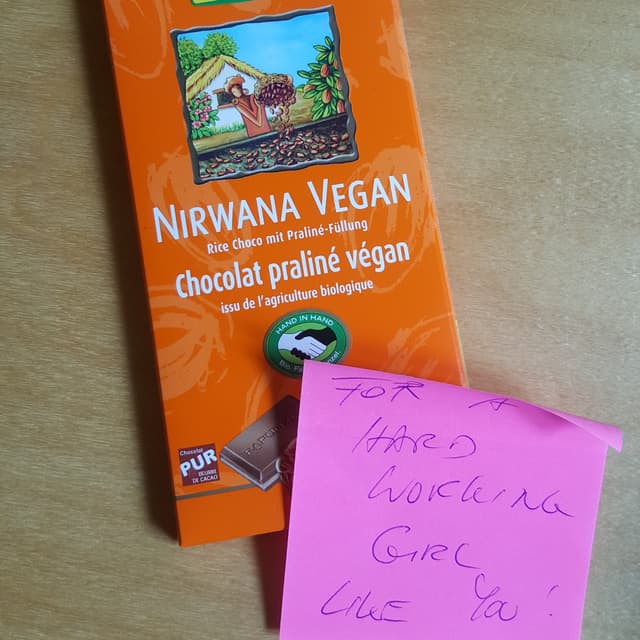 NIRWANA VEGAN
Rice Choco mit Praliné-Füllung
Chocolat praliné végan
issu de l'agriculture biologique
HAND IN HAND
Chocolat
PUR
BEURRE
DE CACAO
RAPUNZEL
FOR A
HARD
WORKING
GIRL
LIKE YOU!